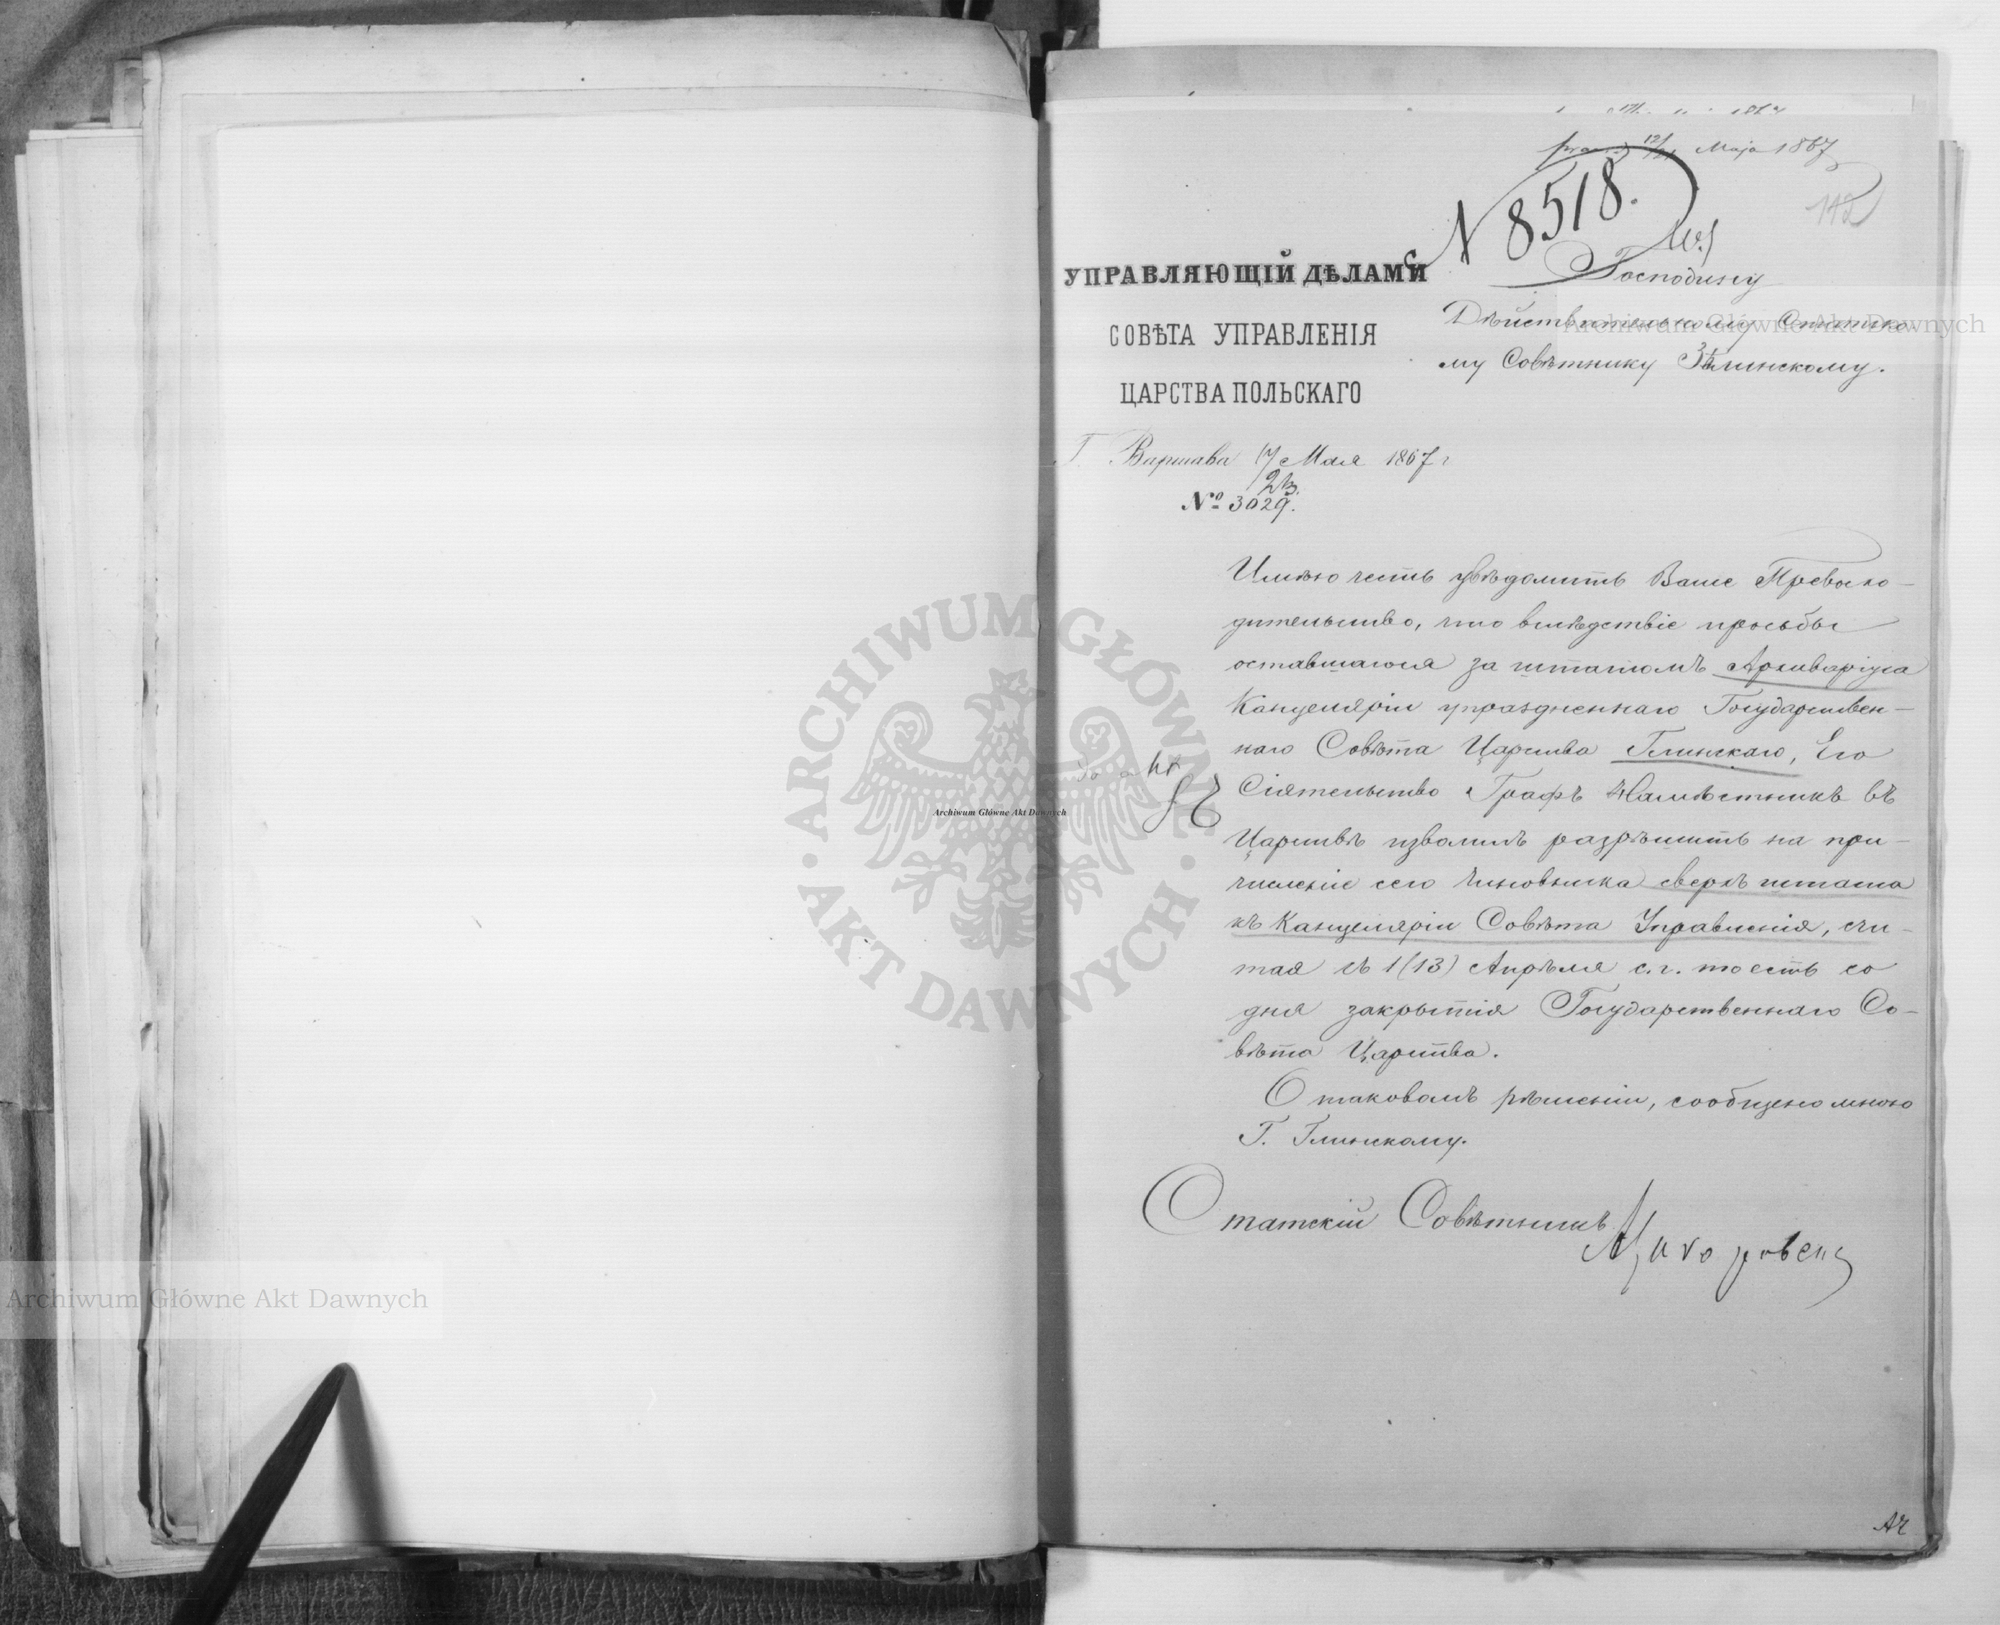 Maja 1867
№ 8518.
142
УПРАВЛЯЮЩІЙ ДѢЛАМИ
СОВѢТА УПРАВЛЕНІЯ
ЦАРСТВА ПОЛЬСКАГО
Г. Варшава 17 Мая 1867 г
№ 3029.
Господину
Дѣйствительному Статско-
му Совѣтнику Зѣлинскому.
Имѣю честь увѣдомить Ваше Превосхо-
дительство, что вслѣдствіе просьбы
оставшагося за штатомъ Архиваріуса
Канцеляріи упраздненнаго Государствен-
наго Совѣта Царства Глинскаго, Его
Сіятельство Графъ Намѣстникъ въ
Царствѣ изволилъ разрѣшить на при-
численіе сего чиновника сверхъ штата
къ Канцеляріи Совѣта Управленія, счи-
тая съ 1(13) Апрѣля с.г. то есть со
дня закрытія Государственнаго Со-
вѣта Царства.
О таковомъ рѣшеніи, сообщено мною
Г. Глинскому.
Статскій Совѣтникъ
Archiwum Główne Akt Dawnych
ARCHIWUM GŁÓWNE · AKT DAWNYCH ·
Archiwum Główne Akt Dawnych
Archiwum Główne Akt Dawnych